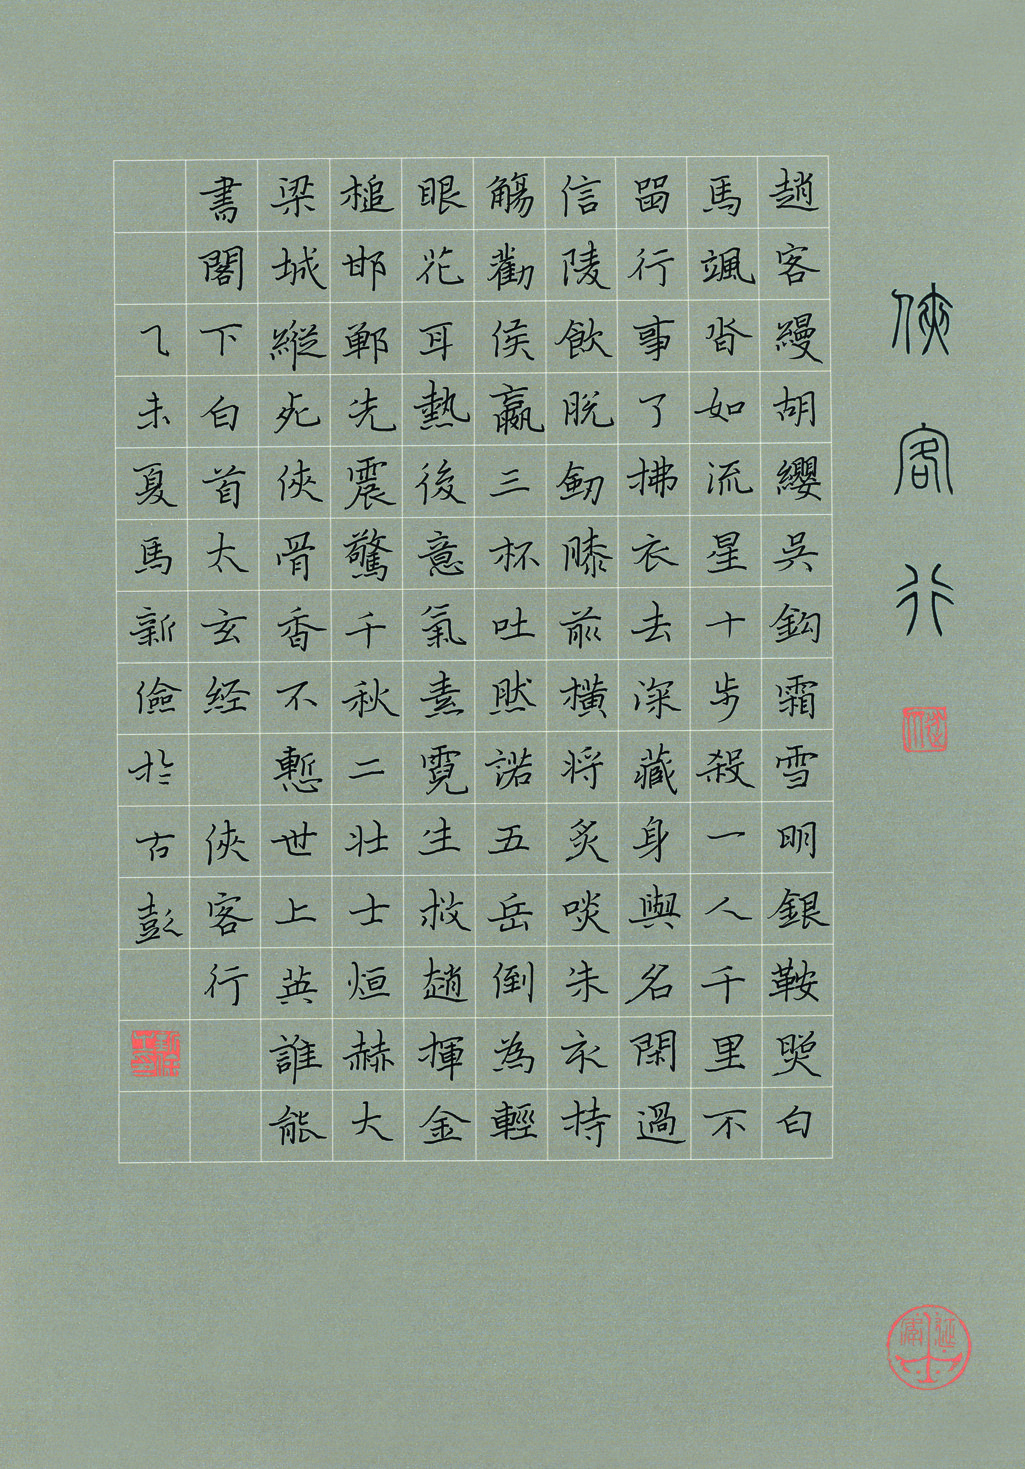 俠客行
趙客縵胡纓吳鈎霜雪明銀鞍照白
馬颯沓如流星十步殺一人千里不
留行事了拂衣去深藏身與名閑過
信陵飲脫劒膝前橫將炙啖朱亥持
觴勸侯嬴三杯吐然諾五岳倒為輕
眼花耳熱後意氣素霓生救趙揮金
槌邯鄲先震驚千秋二壯士烜赫大
梁城縱死俠骨香不慙世上英誰能
書閣下白首太玄经 俠客行
乙未夏馬新儉於古彭